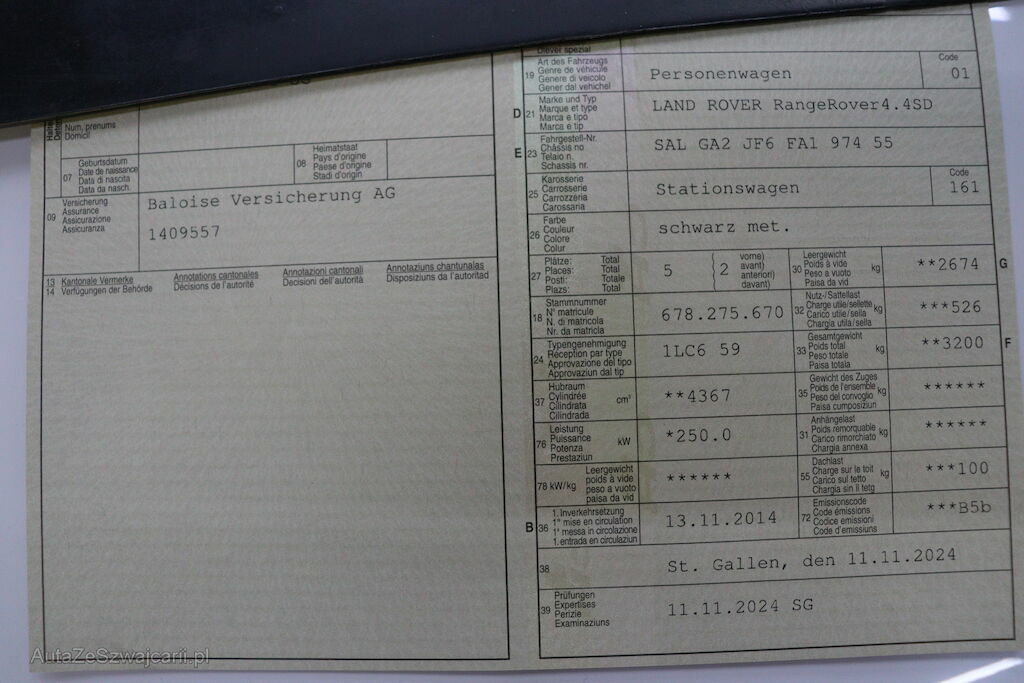 Num, prenums
Domicil
07
Geburtsdatum
Date de naissance
Data di nascita
Data da nasch.
08
Heimatstaat
Pays d'origine
Paese d'origine
Stadi d'origin
09
Versicherung
Assurance
Assicurazione
Assicuranza
Baloise Versicherung AG
1409557
13 Kantonale Vermerke
14 Verfügungen der Behörde
Annotations cantonales
Décisions de l'autorité
Annotazioni cantonali
Decisioni dell'autorità
Annotaziuns chantunalas
Disposiziuns da l'autoritad
Diever spezial
19
Art des Fahrzeugs
Genre de véhicule
Genere di veicolo
Gener dal vehichel
Personenwagen
Code
01
D 21
Marke und Typ
Marque et type
Marca e tipo
Marca e tip
LAND ROVER RangeRover4.4SD
E 23
Fahrgestell-Nr.
Châssis no
Telaio n.
Schassis nr.
SAL GA2 JF6 FA1 974 55
25
Karosserie
Carrosserie
Carrozzeria
Carossaria
Stationswagen
Code
161
26
Farbe
Couleur
Colore
Colur
schwarz met.
27
Plätze: Total
Places: Total
Posti: Totale
Plazs: Total
5
2
vorne)
avant)
anteriori)
davant)
30
Leergewicht
Poids à vide
Peso a vuoto
Paisa da vid
kg
**2674
G
18
Stammnummer
N° matricule
N. di matricola
Nr. da matricla
678.275.670
32
Nutz-/Sattellast
Charge utile/sellette
Carico utile/sella
Chargia utila/sella
kg
***526
24
Typengenehmigung
Réception par type
Approvazione del tipo
Approvaziun dal tip
1LC6 59
33
Gesamtgewicht
Poids total
Peso totale
Paisa totala
kg
**3200
F
37
Hubraum
Cylindrée
Cilindrata
Cilindrada
cm³
**4367
35
Gewicht des Zuges
Poids de l'ensemble
Peso del convoglio
Paisa cumposiziun
kg
******
76
Leistung
Puissance
Potenza
Prestaziun
kW
*250.0
31
Anhängelast
Poids remorquable
Carico rimorchiato
Chargia annexa
kg
******
78 kW/kg
Leergewicht
poids à vide
peso a vuoto
paisa da vid
******
55
Dachlast
Charge sur le toit
Carico sul tetto
Chargia sin il tetg
kg
***100
B 36
1. Inverkehrsetzung
1re mise en circulation
1a messa in circolazione
1. entrada en circulaziun
13.11.2014
72
Emissionscode
Code émissions
Codice emissioni
Code d'emissiuns
***B5b
38
St. Gallen, den 11.11.2024
39
Prüfungen
Expertises
Perizie
Examinaziuns
11.11.2024 SG
AutaZeSzwajcarii.pl